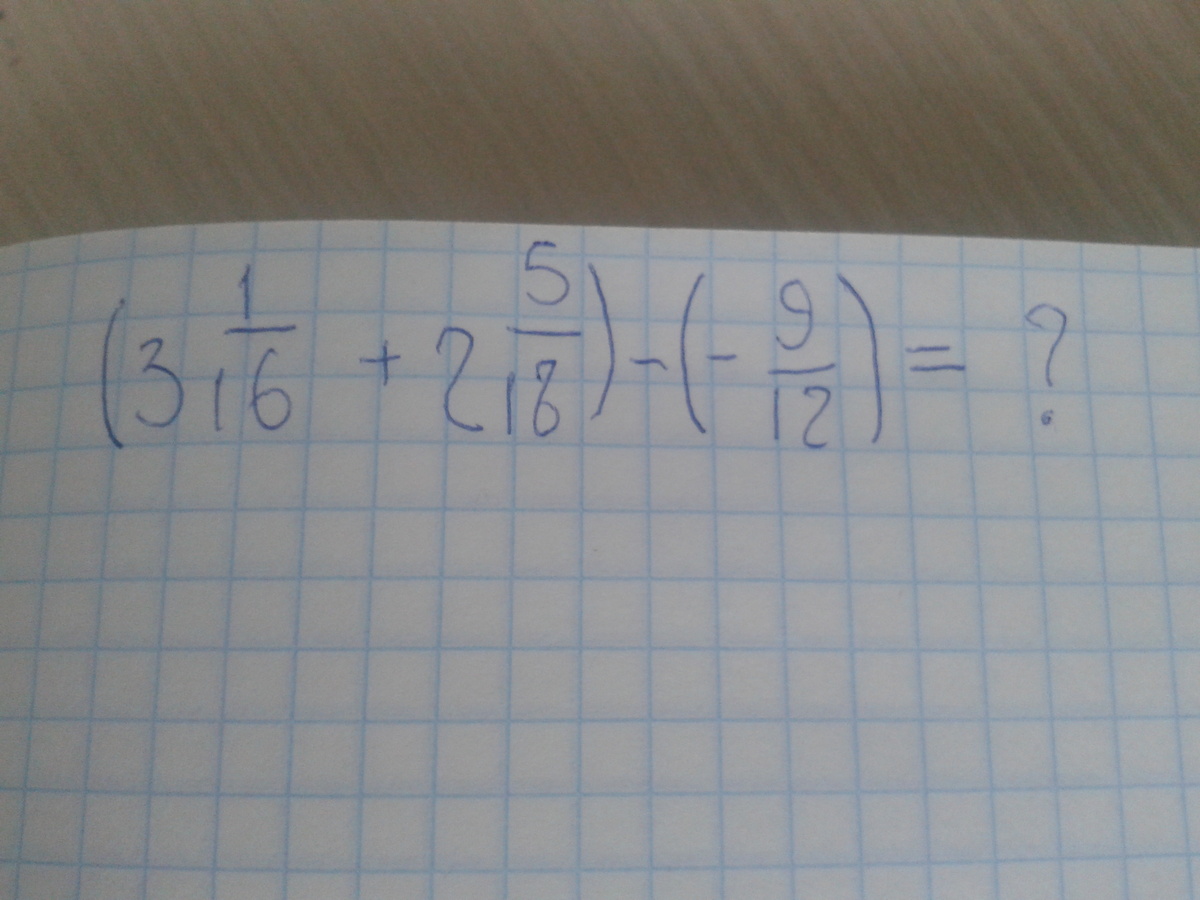 (3 1/16 + 2 5/18) - (- 9/12) = ?